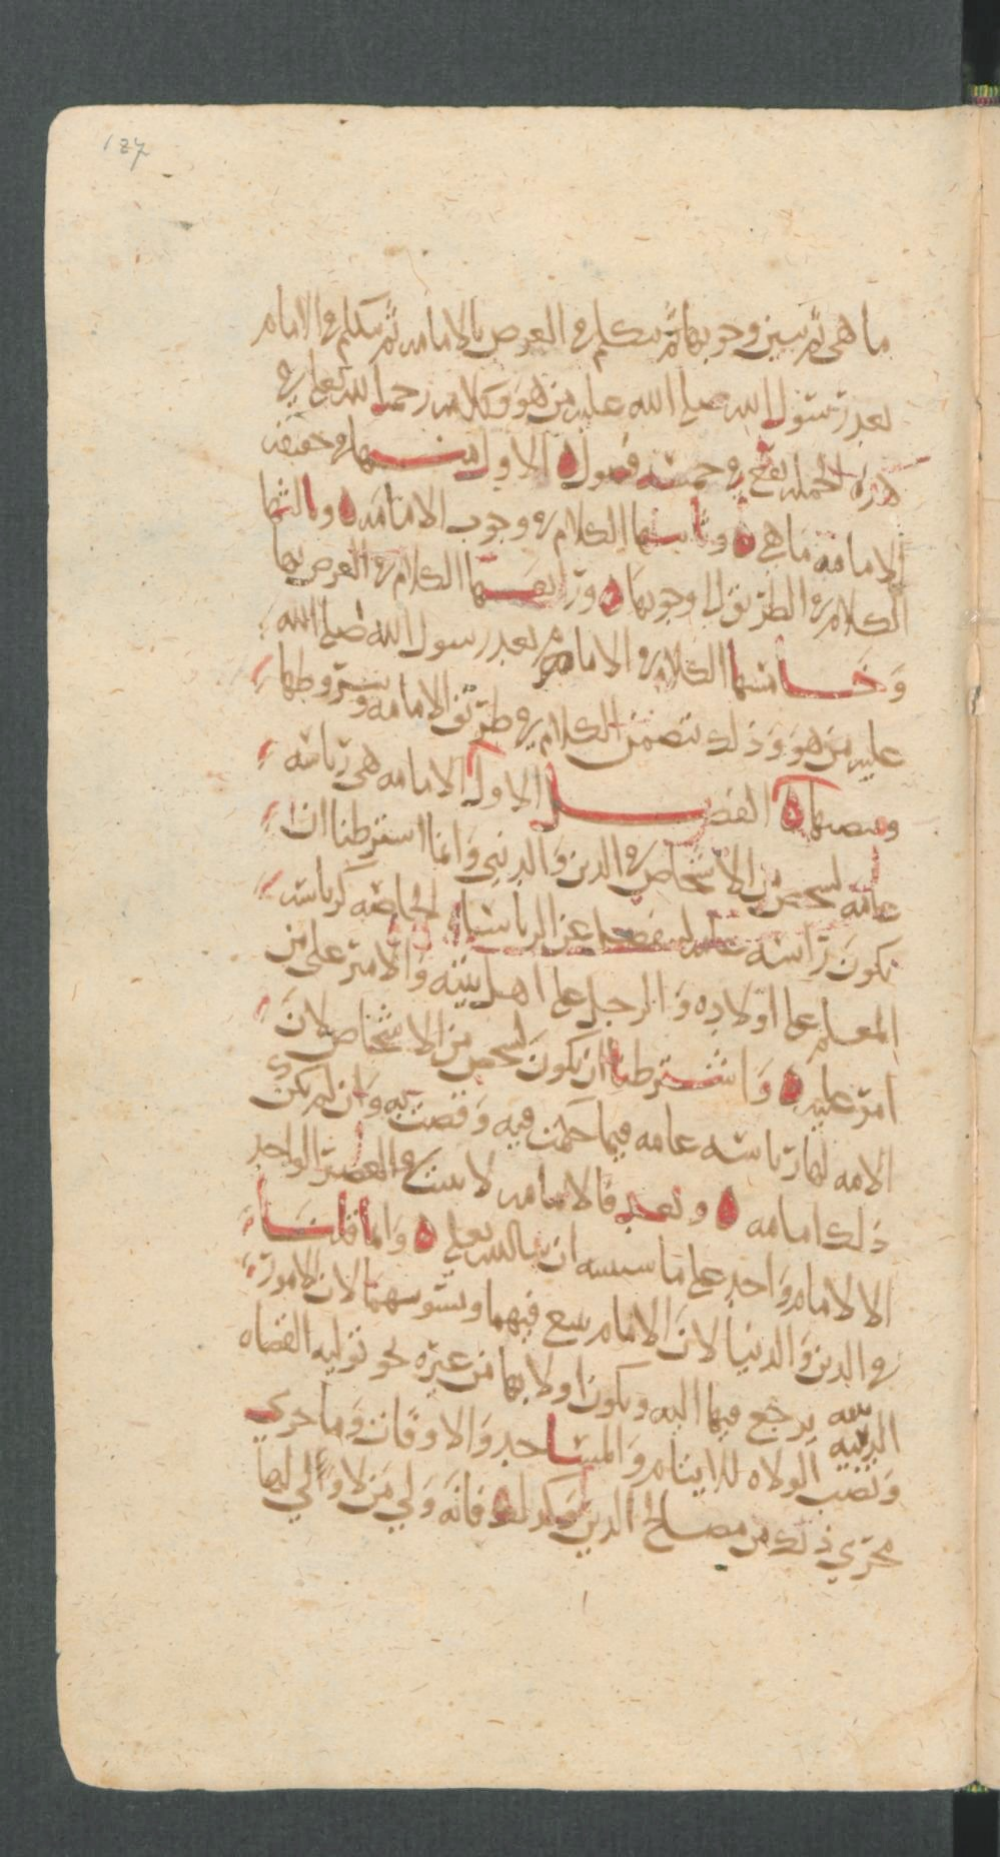 127
ما هي ثم نبين وجوبها ثم نتكلم في الغرض بالامامه ثم نتكلم في الامام
بعد رسول الله صلى الله عليه من هو وكلامه رحمه الله تعالى في
هذه الجمله يقع في خمسه فصول الاول منها في حقيقه
الامامه ما هي وثانيها الكلام في وجوب الامامه وثالثها
الكلام في الطريق الى وجوبها ورابعها الكلام في الغرض بها
وخامسها الكلام في الامام بعد رسول الله صلى الله
عليه من هو وذلك يتضمن الكلام في طريق الامامه وشروطها
الفصل الاول الامامه هي رئاسه
عامه لشخص من الاشخاص في الدين والدنيا وانما اشترطنا ان
تكون رئاسه عامه لتنفصل عن الرياسات الخاصه كرئاسه
المعلم على اولاده والرجل على اهل بيته والامير على من
امر عليه واشترطنا ان تكون لشخص من الاشخاص لان
الامه لها رئاسه عامه فيما حكمت فيه وقضت به وان لم يكن
ذلك امامه وبعد فالامامه لا تثبت في العصر الواحد
الا لامام واحد على ما سنبينه ان شاء الله تعالى وانما قلنا
في الدين والدنيا لان الامام يتبع فيهما ويسوسهما لان الامور
الدينيه يرجع فيها اليه ويكون اولا بها من غيره نحو توليه القضاه
ونصب الولاه للايتام والمساجد والاوقاف وما جرى
مجرى ذلك من مصالح الدين وكذلك فانه ولي من لا ولي لها